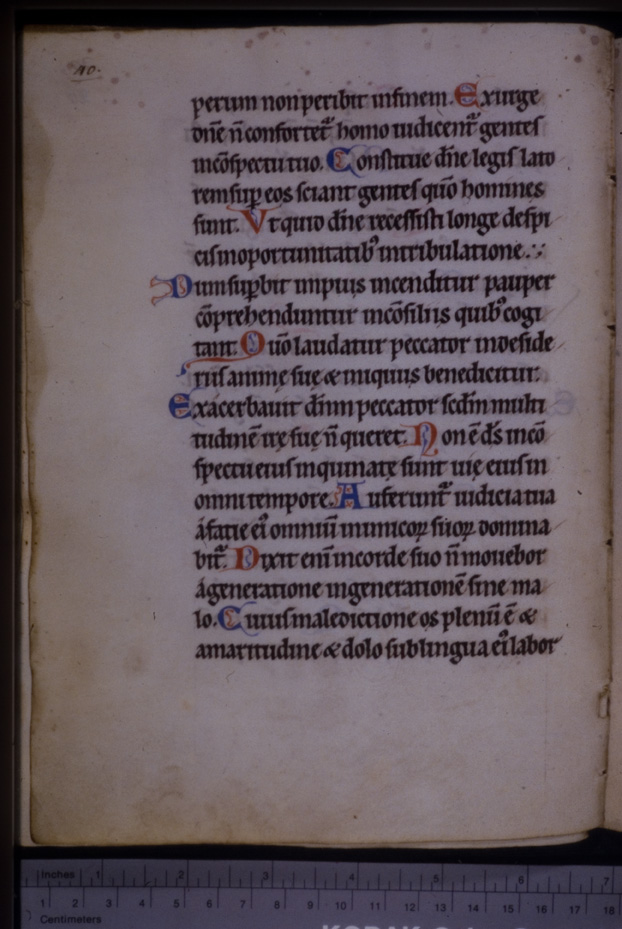 10.
perum non peribit infinem. Exurge
dñe ñ confortet᷑ homo iudicent᷑ gentes
incõspectu tuo. Constitue dñe legis lato
rem sup̱ eos sciant gentes qũo homines
sunt. Vt quid dñe recessisti longe despi
cis inoportunitatib᷒ intribulatione.
Dum sup̱bit impius incenditur pauper
cõprehenduntur incõsiliis quib᷒ cogi
tant. Qũo laudatur peccator indeside
riis anime sue & iniquus benedicitur.
Exacerbauit dñm peccator scdm multi
tudinẽ ire sue ñ queret. Non ẽ ds incõ
spectu eius inquinate sunt uie eius in
omni tempore. Auferunt᷑ iudicia tua
áfatie ei᷒ omniũ inimicoꝝ suoꝝ domina
bit᷑. Dixit enĩ incorde suo ñ mouebor
ágeneratione ingenerationẽ sine ma
lo. Cuius maledictione os plenũ ẽ &
amaritudine & dolo sub lingua ei᷒ labor
Inches 1 2 3 4 5 6 7
1 2 3 4 5 6 7 8 9 10 11 12 13 14 15 16 17 18
Centimeters